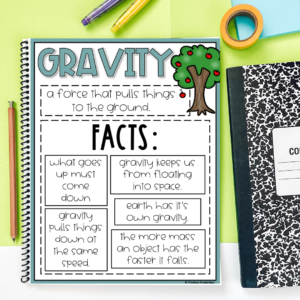 GRAVITY
a force that pulls things
to the ground.
FACTS:
what goes
up must
come
down
gravity keeps us
from floating
into space.
earth has it's
own gravity.
gravity
pulls things
down at
the same
speed.
The more mass
an object has the
faster it falls.
CO